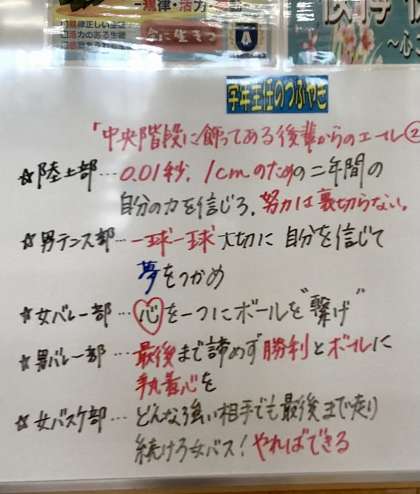 規律・活力
規律正しい生徒
活力のある生徒
共に生きる
学年主任のつぶやき
「中央階段に飾ってある後輩からのエール②
☆陸上部…0.01秒、1cmのための二年間の
自分の力を信じろ、努力は裏切らない。
☆男テニス部…一球一球大切に 自分を信じて
夢をつかめ
☆女バレー部…心を一つにボールを"繋げ"
☆男バレー部…最後まで諦めず勝利とボールに
執着心を
☆女バスケ部…どんなる強い相手でも最後まで走り
続けろ女バス!やればできる